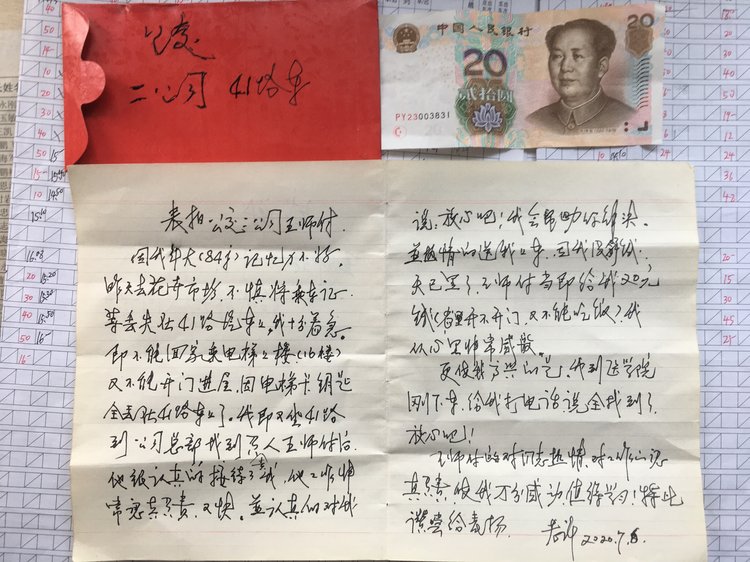 公交
二公司 41路车
中国人民银行
20
20
贰拾圆
PY23003831
表扬公交二公司王师付
因我年大(84岁)记忆力不好,
昨天去花卉市场,不慎将乘车证
等丢失在41路汽车上,我十分着急。
即不能回家乘电梯上楼(16楼)
又不能开门进屋,因电梯卡钥匙
全丢在41路车上了。我即又坐41路
到公司总部找到 人王师付后
他很认真的接待了我,他工作非
常认真负责,又快。並认真的对我
说,放心吧!我会帮助你解决。
並热情的送我上车,因我没带钱,
天已黑了,王师付当即给我20元
钱(家里开不开门,又不能吃饭),我
从心里非常感激。
更使我高兴的是,我到医学院
刚下车,给我打电话说全找到了,
放心吧!
王师付的对同志热情,对工作认认
真负责使我万分感动,值得学习!特此
讚赏给表扬。
2020.7.6